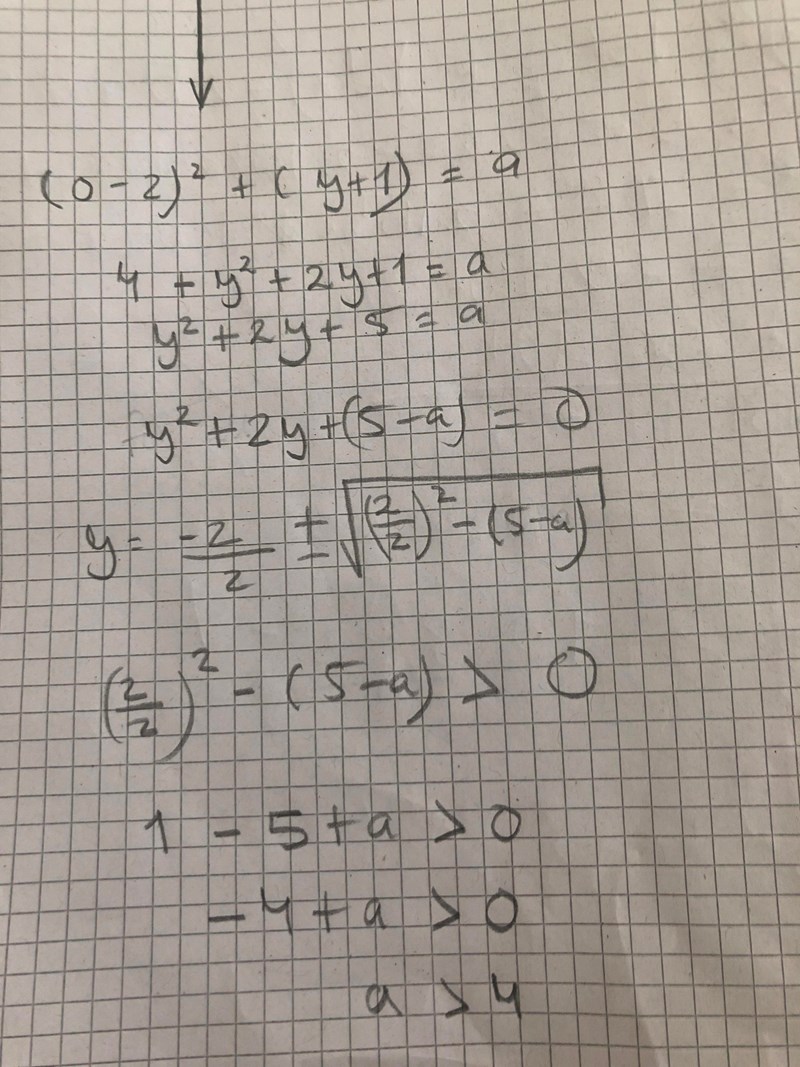 (0-2)² + (y+1) = a
4 + y² + 2y+1 = a
y² + 2y + 5 = a
y² + 2y + (5-a) = 0
y = -2/2 ± √((2/2)² - (5-a))
(2/2)² - (5-a) > 0
1 - 5 + a > 0
-4 + a > 0
a > 4